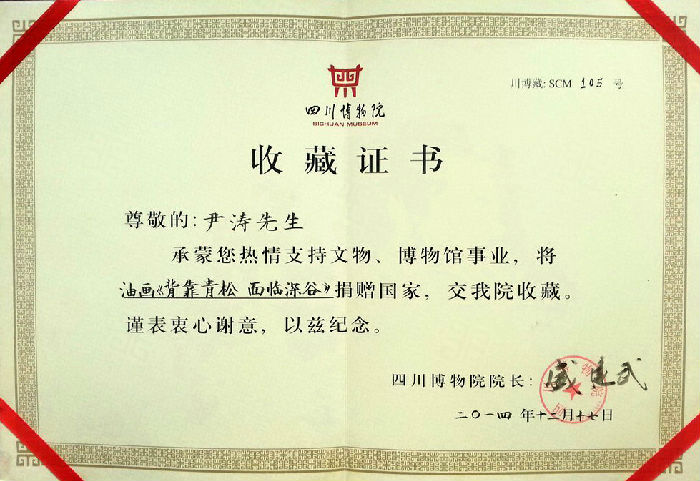 川博藏: SCM 105 号
四川博物院
SICHUAN MUSEUM
收藏证书
尊敬的: 尹涛先生
承蒙您热情支持文物、博物馆事业，将
油画《背靠青松 面临深谷》捐赠国家，交我院收藏。
谨表衷心谢意，以兹纪念。
四川博物院院长: 盛建武
二〇一四年十二月十七日